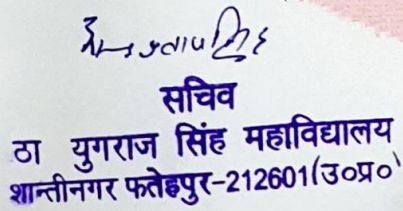 प्रताप सिंह
सचिव
ठा युगराज सिंह महाविद्यालय
शान्तीनगर फतेहपुर-212601(उ०प्र०)